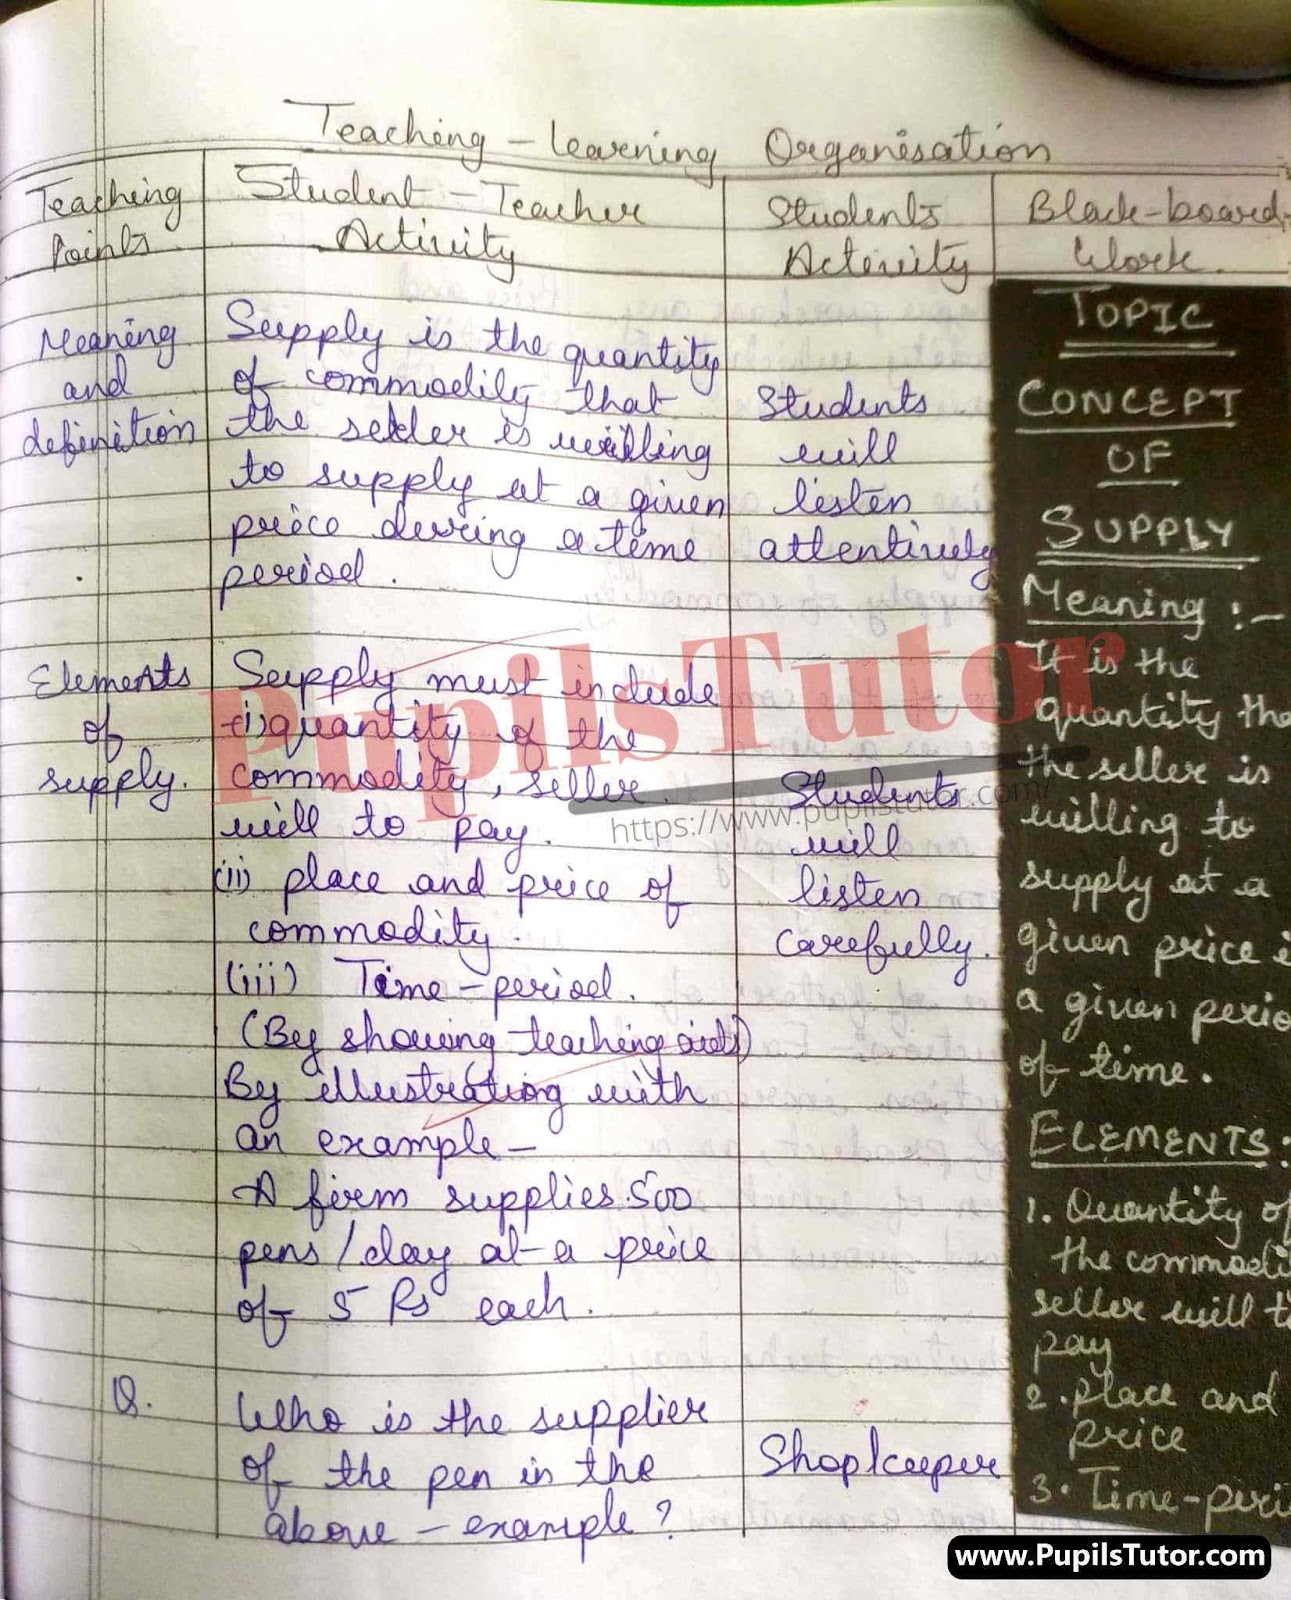 Teaching - Learning Organisation
Teaching
Points
Student - Teacher
Activity
Students
Activity
Black-board-
Work.
Meaning
and
definition
Supply is the quantity
of commodity that
the seller is willing
to supply at a given
price during a time
period.
Students
will
listen
attentively
Elements
of
supply.
Supply must include
(i) quantity of the
commodity, seller
will to pay.
(ii) place and price of
commodity.
(iii) Time-period.
(By showing teaching aids)
By illustrating with
an example-
A firm supplies 500
pens/day at a price
of 5 Rs each.
Students
will
listen
carefully.
Q.
Who is the supplier
of the pen in the
above-example?
Shopkeeper
TOPIC
CONCEPT
OF
SUPPLY
Meaning :-
It is the
quantity tha
the seller is
willing to
supply at a
given price i
a given perio
of time.
ELEMENTS:
1. Quantity of
the commodi
seller will t
pay
2. place and
price
3. Time-peri
PupilsTutor
https://www.pupilstutor.com/
www.PupilsTutor.com